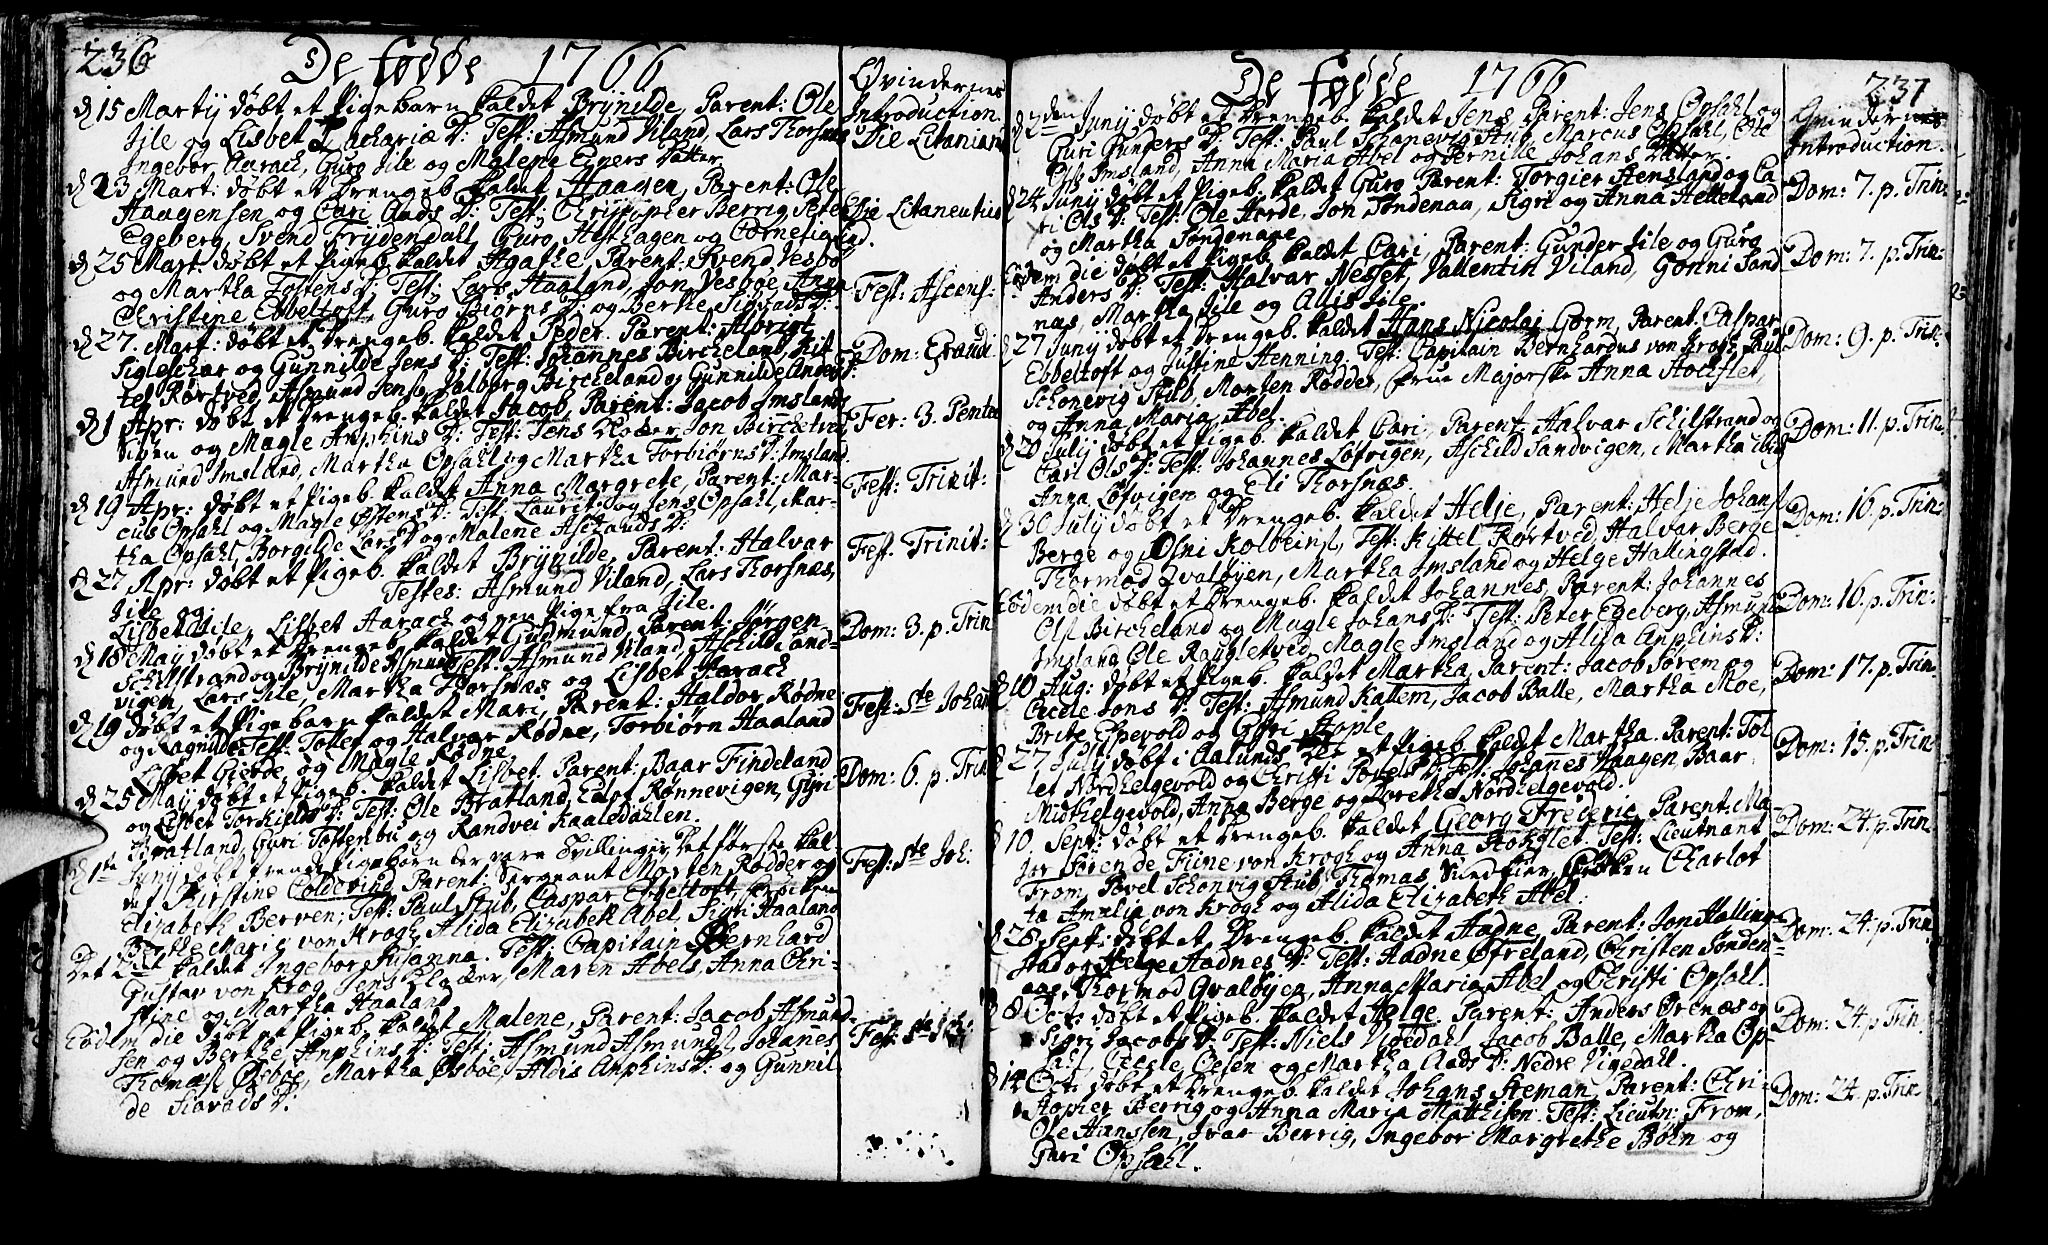 236 De fødde 1766
Qvindernes
Introduction
d 15 Martij døbt et Pigebarn kaldet Brynilde, Parent: Ole
Jile og Lisbet Zachariæ D: Test: Asmund Viland, Lars Thorsnæs
Ingebor Aarach, Guro Jile og Malene Einers Datter
Die Litaniarum
d 23 Mart: døbt et Drengeb. kaldet Haagen, Parent: Ole
Haagensen og Cari Aads D: Test: Christopher Berrig, Peter
Egeberg, Svend Frydendall, Guro Hesthagen og Cornelia
Die Litaneutico
d 25 Mart: døbt et Pigeb. kaldet Agathe, Parent: Svend Vesbøe
og Martha Tostens D: Test: Lars Haaland, Jon Vesbøe, Anna
Christine Ebbeltoft, Guro Biørns D: og Berthe Sivads D:
Fest: Ascens:
d 27. Mart: døbt et Drengeb. kaldet Peder. Parent: Albrigt
Sigleskar og Gunnilde Jens D: Test: Johannes Bircheland, Kit-
tel Rørtved, Asmund Jens, Salborg Bircheland og Gunnilde Anders D:
Dom: Exaudi
d 1 Apr: døbt et Drengeb. kaldet Jacob, Parent: Jacob Imslands
Viken og Magle Anphins D: Test: Jens Klocker, Jon Birchetved
Asmund Imsland, Martha Opsahl og Martha Torbiørns D: Imsland.
Fer: 3. Pentec
d 19 Apr: døbt et Pigeb. kaldet Anna Margrete, Parent: Mar-
cus Opsahl og Magle Østens D: Test: Laurits og Jens Opsahl, Mar-
tha Opsahl, Borgilde Lars D og Malene Aschauds D:
Fest: Trinit:
d 27 Apr: døbt et Pigeb. kaldet Brynilde, Parent: Halvar
Jile og Testes: Asmund Viland, Lars Thorsnæs,
Lisbet Jile, Lisbet Aarach og en Pige fra Jile.
Fest: Trinit:
d 18 Maÿ døbt et Drengeb. kaldt Gudmund, Parent: Jørgen
Schilstrand og Brynilde Asmund Test: Asmund Viland, Aschild Sand-
vigen, Lars Jile, Martha Thorsnæs og Lisbet Aarach
Dom: 3. p. Trin
d 19 døbt et Pigebarn kaldet Mari, Parent: Haldor Rødne
og Ragnilde Test: Tollef og Halvar Rødne, Torbiørn Haaland
Lisbet Gierde og Magle Rødne.
Fest: Ste Johan
d 25 Maÿ døbt et Pigeb. kaldet Lisbet. Parent: Baar Findeland
og Lisbet Torkields D: Test: Ole Bratland, Elof Rønnevigen, Gyri
Bratland, Guri Tostenbu og Randvei Kaaledahlen.
Dom: 6. p. Trin
d 1ste Juny døbt tvende Pigebørn der vare Tvillinger, Det første kal-
det Kirstine Coldevind, Parent: Sergeant Morten Rødder og
Elizabeth Berven; Test: Paul Stub, Caspar Ebbeltoft,
Birthe Marie von Krogh, Alida Elizabeth Abel, Sigri Haaland
Fest: Ste Joh:
Det 2det kaldet Ingebor Susanna. Test: Capitain Bernhard
Gustav von Krog, Jens Klocker, Maren Abels, Anna Chri-
stine og Martha Haaland
Eodem die døbt et Pigeb. kaldet Malene, Parent: Jacob Asmund-
sen og Berthe Anphins D: Test: Asmund Asmunds, Johanes
Thomæs Øsbøe, Martha Øsbøe, Aldis Anphins D: og Gunnil-
de Siavads D:
Fest: Ste Joh:
De fødde 1766 237
Qvindernes
Introduction.
d 2den Juny døbt et Drengeb. kaldet Jens Parent: Jens Opsahl og
Guri Gunders D: Test: Paul Schonevig Stub, Marcus Opsahl, Ole
Imsland, Anna Maria Abel og Pernille Johans Datter.
d 24 Juny døbt et Pigeb. kaldet Guro Parent: Torgier Hensland og Ca-
ri Ols D: Test: Ole Horde, Jon Søndenaa, Sigri og Anna Hetteland
og Martha Søndenaae
Dom: 7. p. Trin:
Eodem die døbt et Pigeb. kaldet Cari, Parent: Gunder Jile og Guro
Anders D: Test: Halvar Nesset, Vallentin Viland, Gonni Sand
næs, Martha Jile og Allis Jile.
Dom: 7. p. Trin:
d 27 Juny døbt et Drengeb. kaldet Hans Nicolai Gorm, Parent: Caspar
Ebbeltoft og Justine Henning. Test: Capitain Bernhardus von Krogh, Paul
Schonevig Stub, Morten Rødder, Frue Majorske Anna Hochflet,
og Anna Maria Abel.
Dom: 9. p. Trin:
d 20 July døbt et Pigeb. kaldet Cari, Parent Halvar Schilstrand og
Cari Ols D: Test: Johannes Løfvigen, Aschild Sandvigen, Martha
Anna Løfvigen og Eli Thorsnæs.
Dom: 11. p. Trin:
d 30 July døbt et Drengeb. kaldet Helje, Parent: Helje Johans
Berge og Osni Kolbeins, Test: Kittel Rørtved, Halvar Berge
Thormod Qvaløyen, Martha Imsland og Helge Hallingstad.
Dom: 16. p. Trin:
Eodem die døbt et Drengeb. kaldet Johannes, Parent: Johannes
Ols Bircheland og Magle Johans D: Test: Peter Egeberg, Asmund
Imsland, Ole Ragletved, Magle Imsland og Alida Anphins D:
Dom: 16. p. Trin:
d 10 Aug: døbt et Pigeb. kaldet Martha, Parent: Jacob Sørem og
Cecele Jons D: Test: Asmund Kallem, Jacob Balle, Martha Moe,
Brite Espevold og Gyri Stople
Dom: 17. p. Trin:
d 27 July døbt i Aalunds et Pigeb. kaldet Martha. Parent: Tol
let Nordhelgevold og Christi Povels D: Test: Johanes Haagen, Baar
Midthelgevold, Anna Berge og Dorethe Nordhelgevold.
Dom: 15. p. Trin:
d 10. Sept: døbt et Drengeb. kaldet Georg Frideric, Parent: Ma-
jor Søren de Fine von Krogh og Anna Hokflet. Test: Lieutnant
From, Povel Schonvig Stub, Thomas Sundkier, Frøken Charlot
ta Amelia von Krogh og Alida Elizabeth Abel.
Dom: 24. p. Trin:
d 28 Sept: døbt et Drengeb. kaldet Aadne, Parent: Jon Halling-
stad og Helge Aadnes D: Test: Aadne Øfreland, Christen Sønden-
aae, Thormod Qvaløyen, Anna Maria Abel og Christi Opsahl.
Dom: 24. p. Trin:
d 8 Octo døbt et Pigeb. kaldet Helge, Parent: Anders Ørenæs og
Sigri Jacobs D: Test: Niels Vigedal, Jacob Balle, Martha Op-
sahl, Cecele Oesen og Martha Aads D: Nedre Vigedahl.
Dom: 24. p. Trin.
d 14 Octo døbt et Drengeb. kaldet Johans Heman, Parent: Chri-
stopher Berrig og Anna Maria Matthisen. Test: Lieutn: From,
Ole Hanssen, Ivar Berrig, Ingebor Margrethe Bøln og
Guri Opsahl.
Dom: 24. p. Trin: